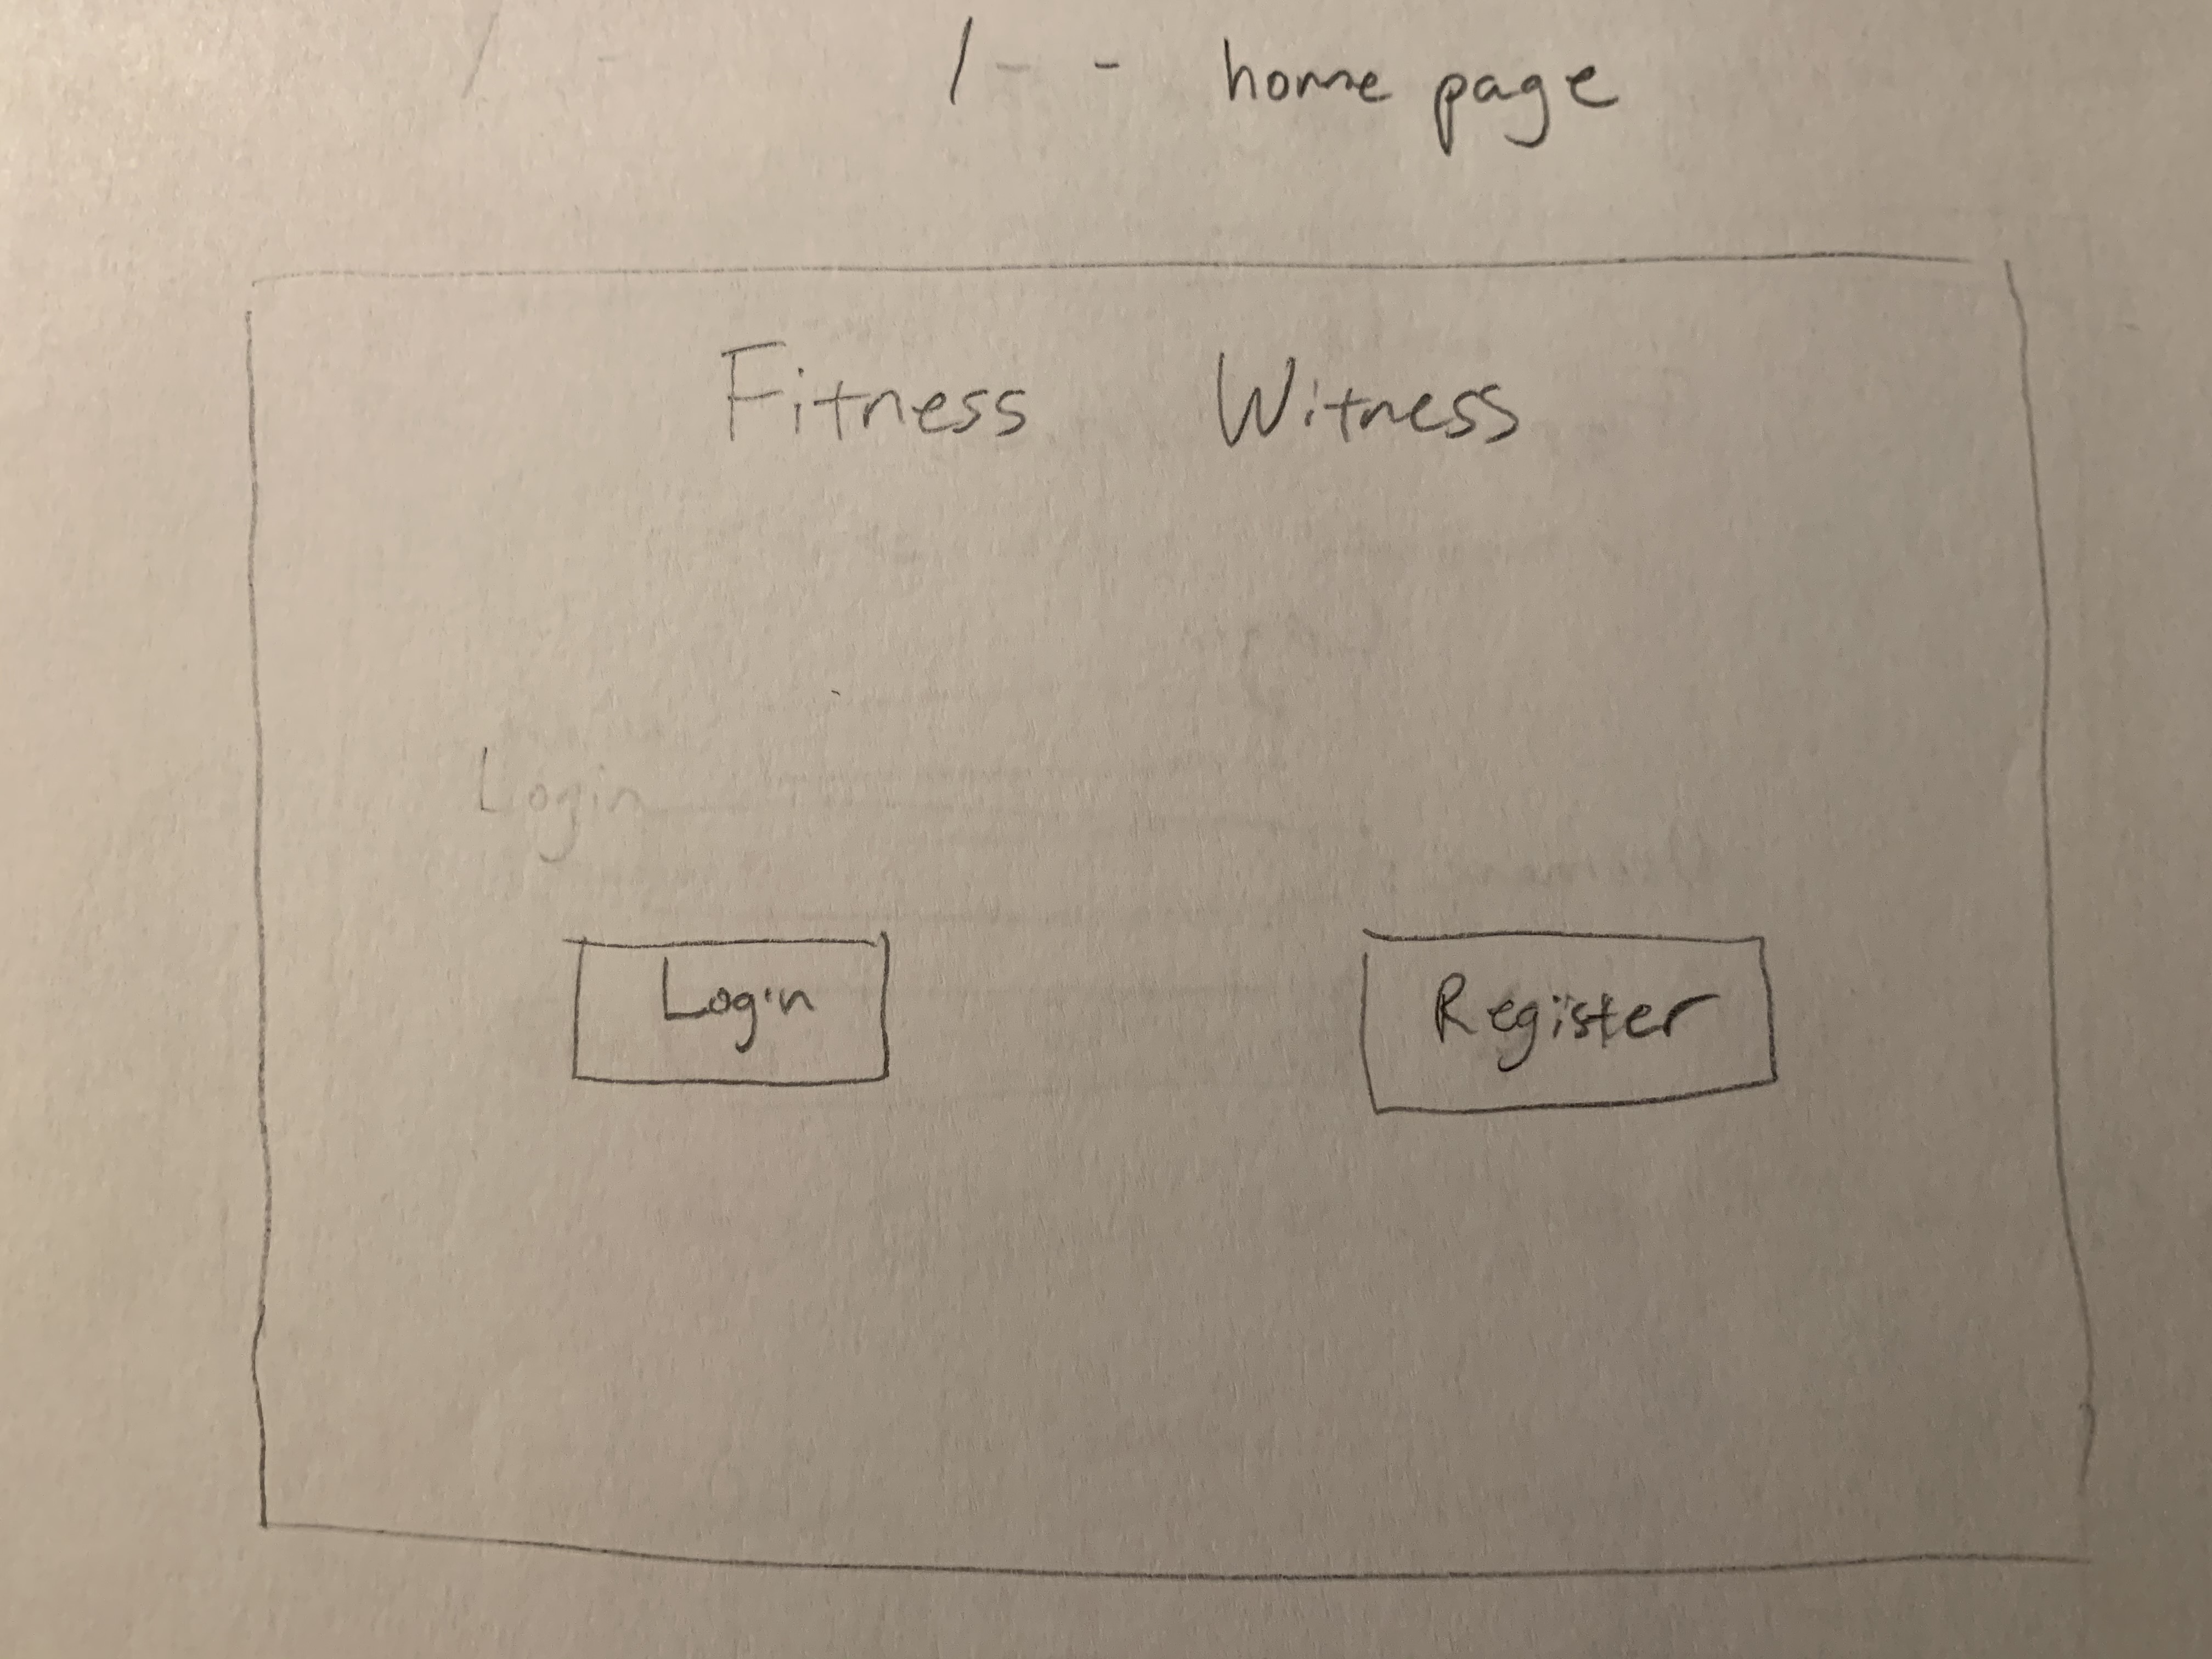 / - - home page
Fitness Witness
Login
Login Register